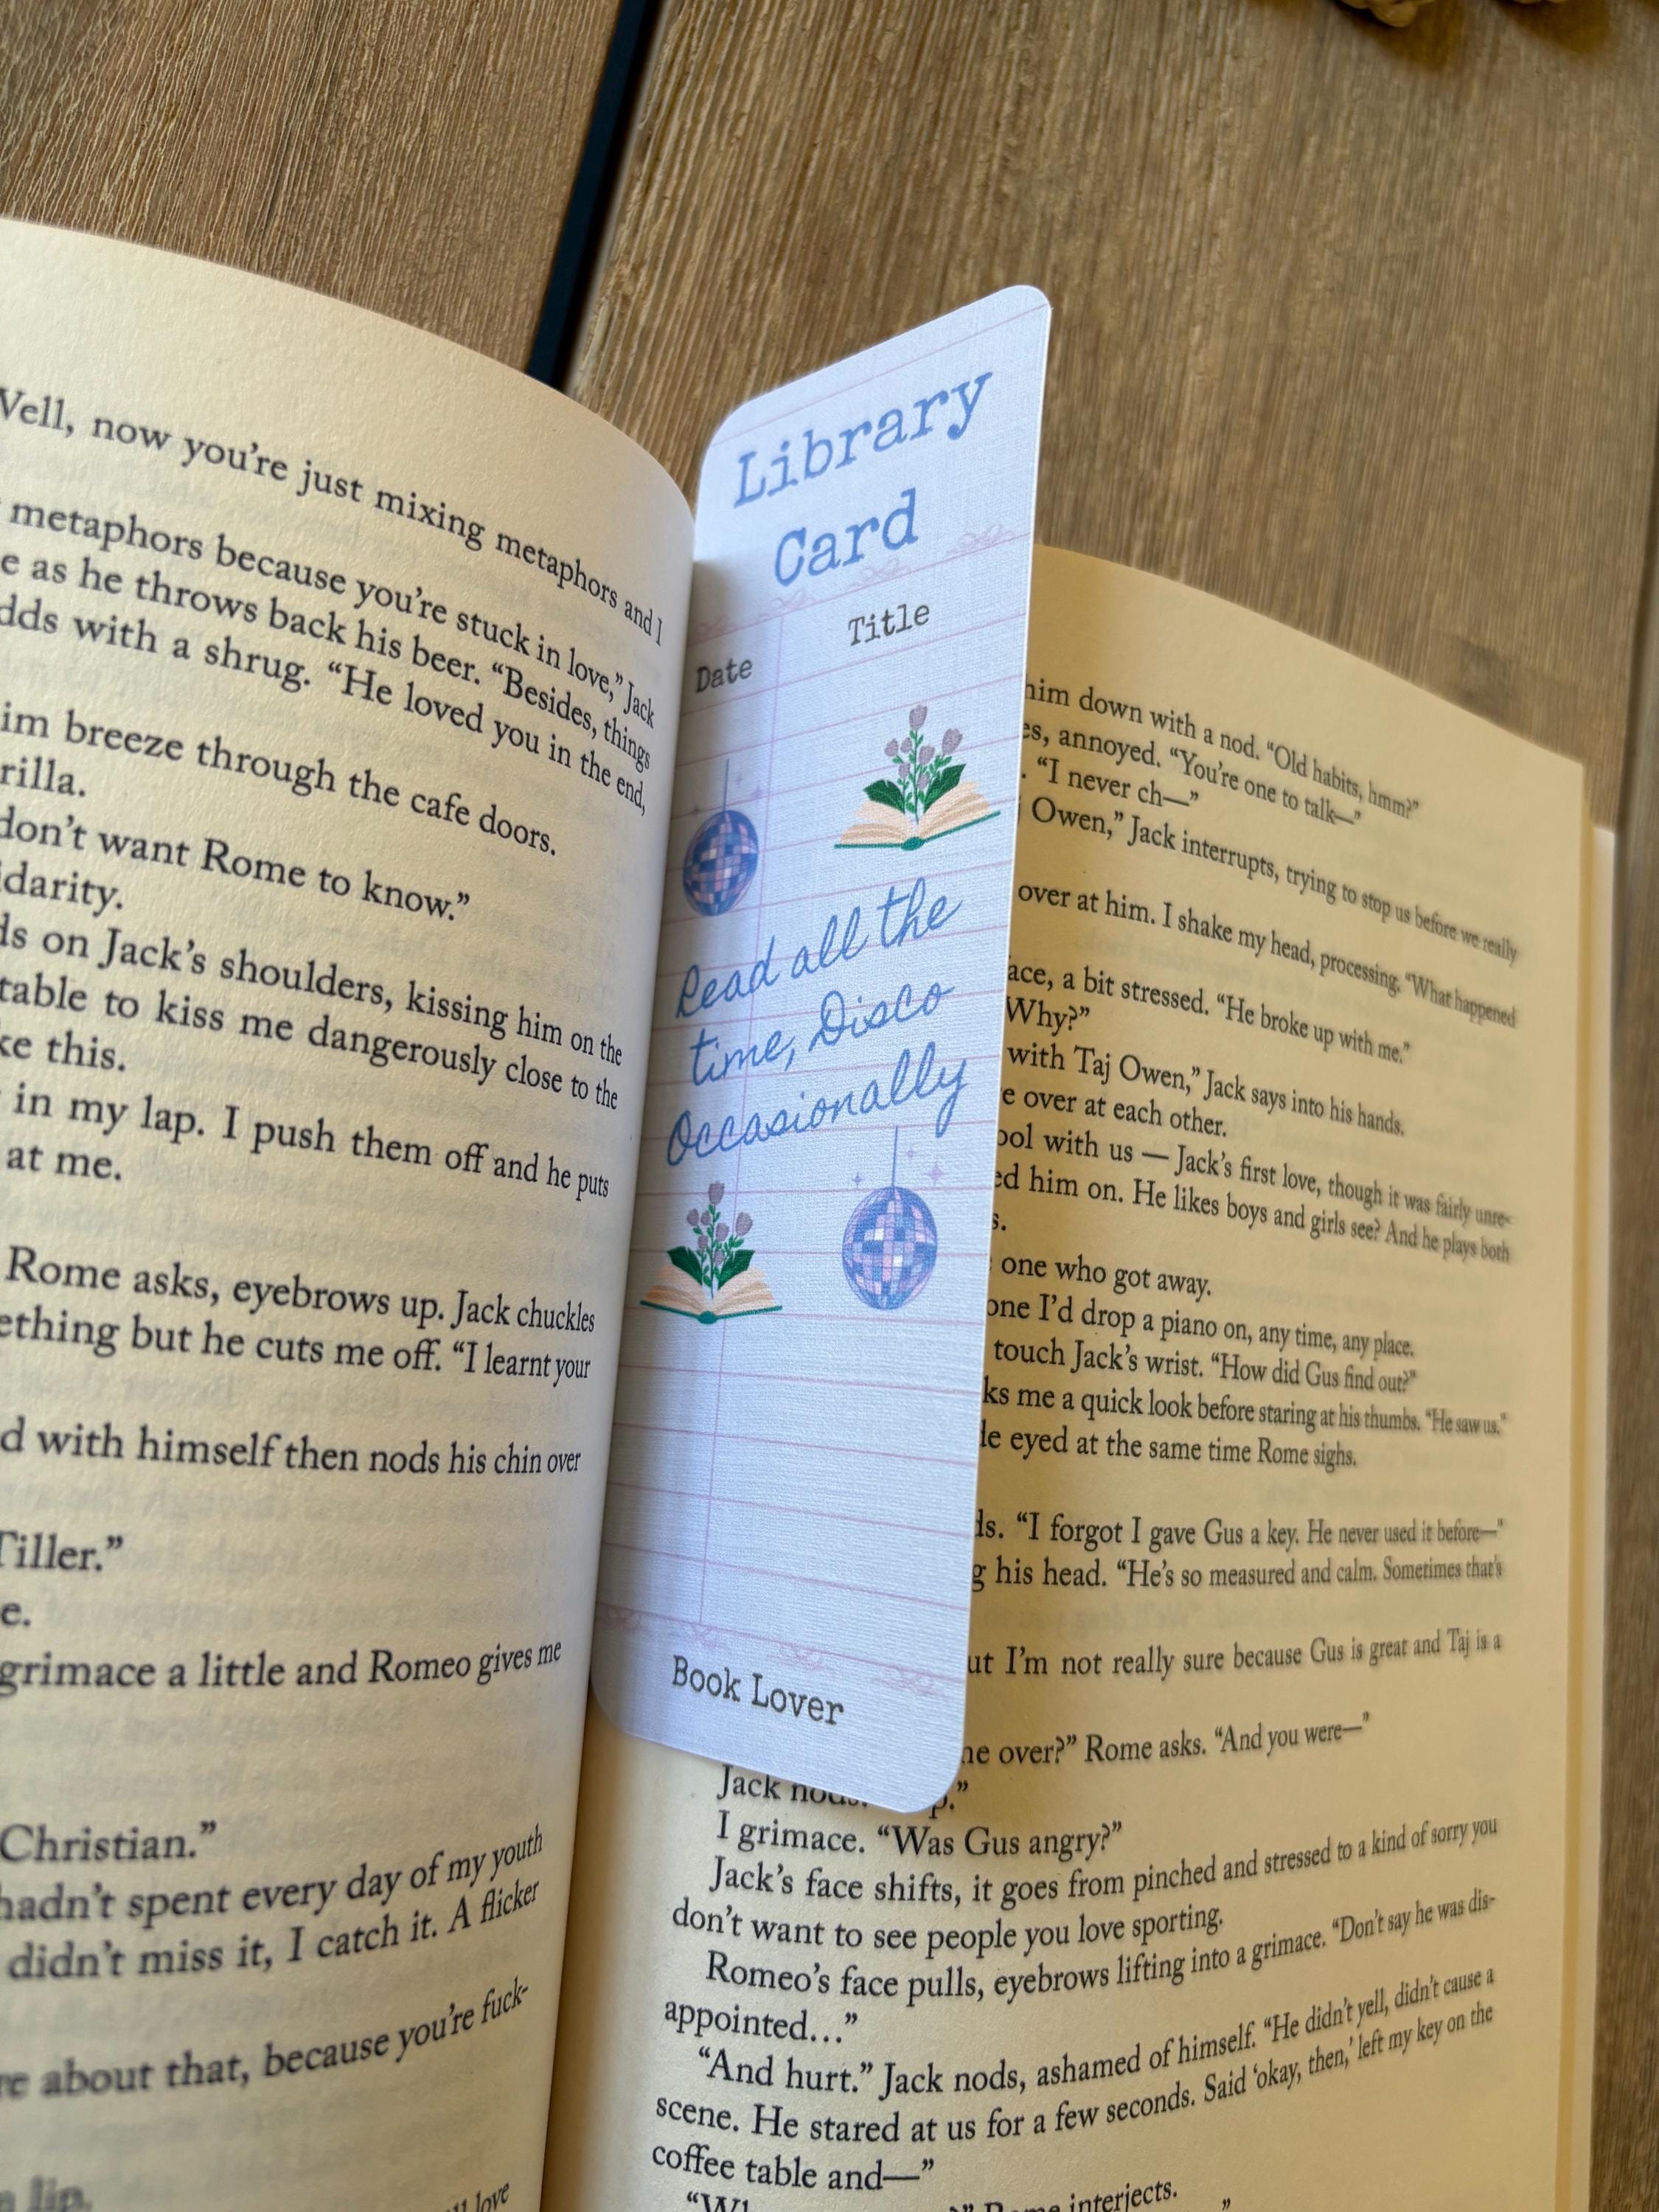 Vell, now you're just mixing metaphors and I
metaphors because you're stuck in love," Jack
e as he throws back his beer. "Besides, things
dds with a shrug. "He loved you in the end,
im breeze through the cafe doors.
rilla.
don't want Rome to know."
idarity.
ds on Jack's shoulders, kissing him on the
table to kiss me dangerously close to the
ke this.
in my lap. I push them off and he puts
at me.
Rome asks, eyebrows up. Jack chuckles
ething but he cuts me off. "I learnt your
d with himself then nods his chin over
Tiller."
e.
grimace a little and Romeo gives me
Christian."
hadn't spent every day of my youth
didn't miss it, I catch it. A flicker
re about that, because you're fuck-
lip.
love
Library
Card
Date Title
Read all the
time, Disco
Occasionally
Book Lover
him down with a nod. "Old habits, hmm?"
es, annoyed. "You're one to talk—"
. "I never ch—"
j Owen," Jack interrupts, trying to stop us before we really
over at him. I shake my head, processing. "What happened
ace, a bit stressed. "He broke up with me."
Why?"
with Taj Owen," Jack says into his hands.
e over at each other.
ool with us — Jack's first love, though it was fairly unre-
ed him on. He likes boys and girls see? And he plays both
s.
one who got away.
one I'd drop a piano on, any time, any place.
touch Jack's wrist. "How did Gus find out?"
ks me a quick look before staring at his thumbs. "He saw us."
le eyed at the same time Rome sighs.
ds. "I forgot I gave Gus a key. He never used it before—"
g his head. "He's so measured and calm. Sometimes that's
ut I'm not really sure because Gus is great and Taj is a
ne over?" Rome asks. "And you were—"
Jack nods. p."
I grimace. "Was Gus angry?"
Jack's face shifts, it goes from pinched and stressed to a kind of sorry you
don't want to see people you love sporting.
Romeo's face pulls, eyebrows lifting into a grimace. "Don't say he was dis-
appointed…"
"And hurt." Jack nods, ashamed of himself. "He didn't yell, didn't cause a
scene. He stared at us for a few seconds. Said 'okay, then,' left my key on the
coffee table and—"
Rome interjects.